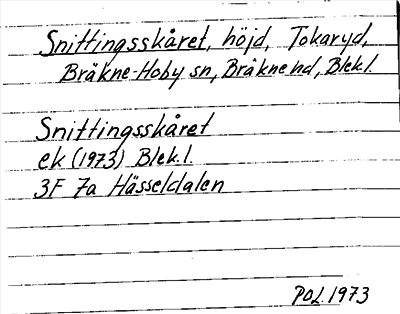 Snittingsskåret, höjd, Tokaryd,
Bräkne-Hoby sn, Bräkne hd, Blek.l.
Snittingsskåret
ek (1973) Blek.l.
3F 7a Hässeldalen
POL 1973